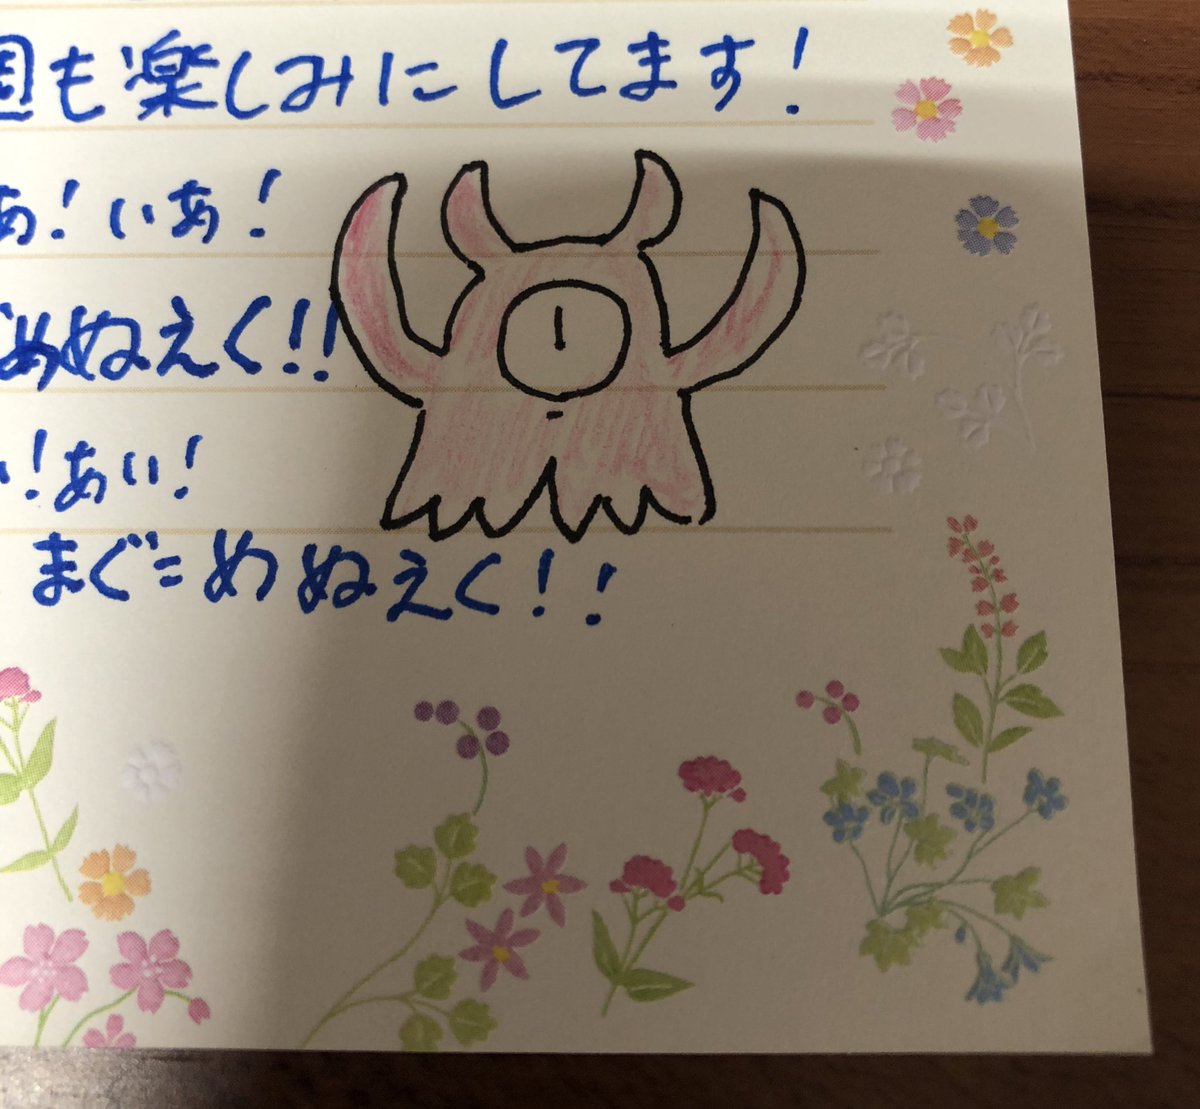 週も楽しみにしてます!
あ!いあ!
めぬえく!!
い!あい!
まぐ=めぬえく!!